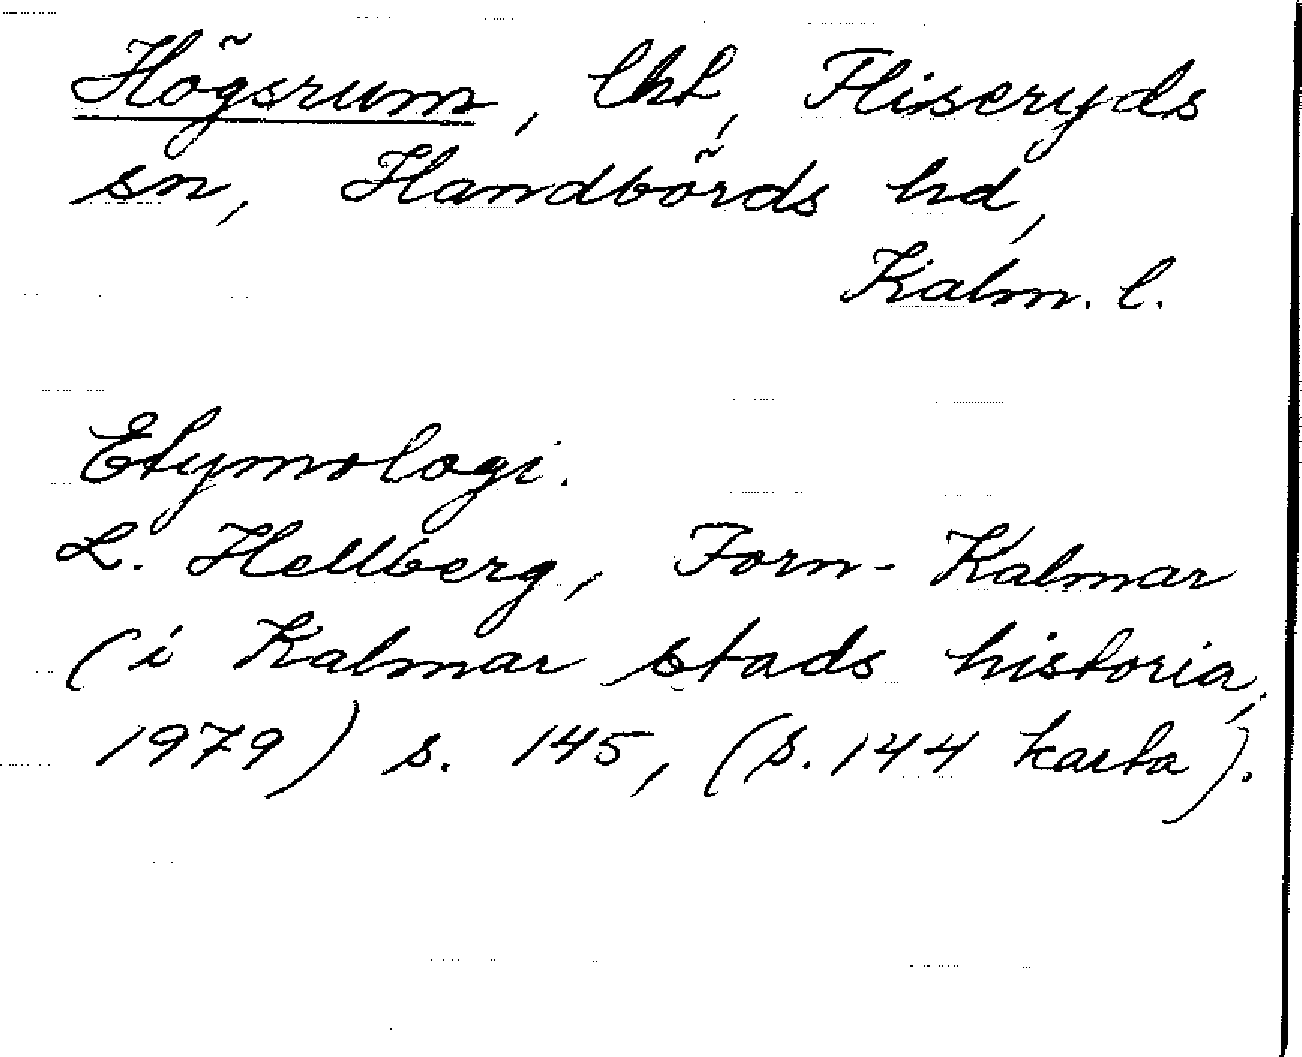 Högsrum, lht, Fliseryds
sn, Handbörds hd,
Kalm. l.
Etymologi.
L. Hellberg, Forn-Kalmar
(i Kalmar stads historia,
1979) s. 145, (s. 144 karta).